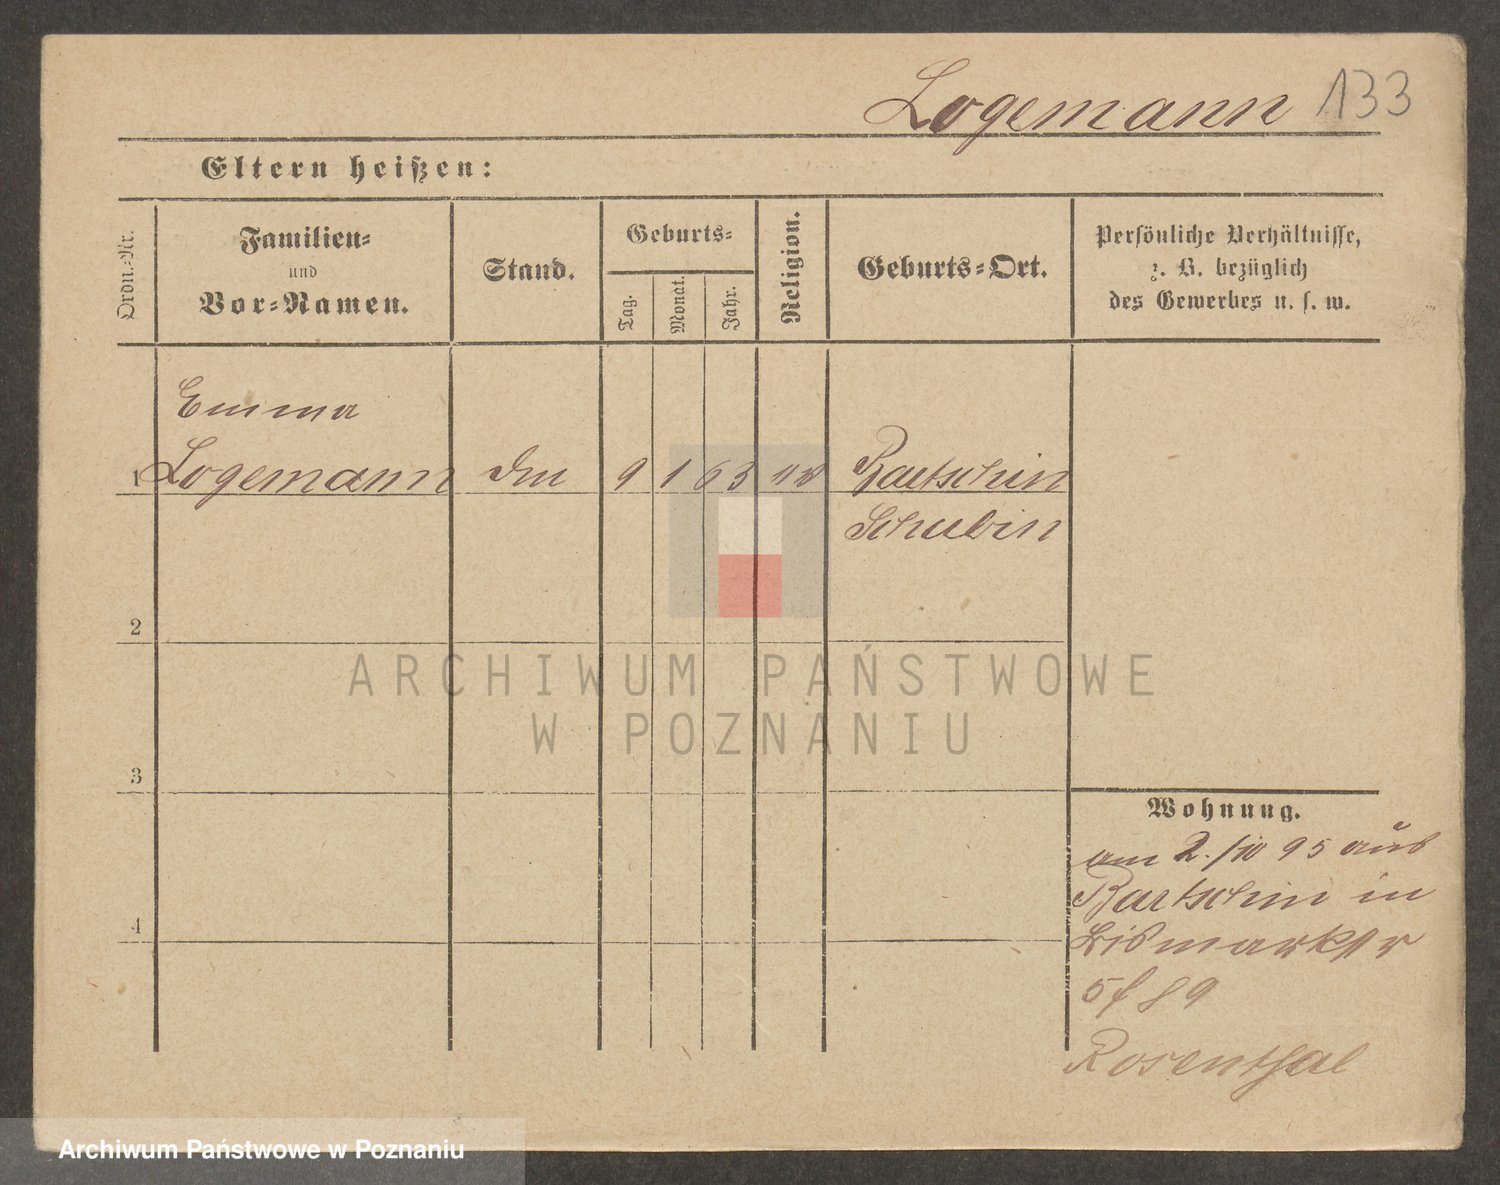 Logemann 133
Eltern heißen:
Ordn.-Nr.
Familien-
und
Vor-Namen.
Stand.
Geburts-
Tag.
Monat.
Jahr.
Religion.
Geburts-Ort.
Persönliche Verhältnisse,
z. B. bezüglich
des Gewerbes u. s. w.
Emma
1 Logemann 9 1 63 Bartschin
Schubin
2
3
4
Wohnung.
am 2./10 95 aus
Bartschin in
Bismarkstr
5 89
Rosenthal
ARCHIWUM PAŃSTWOWE
W POZNANIU
Archiwum Państwowe w Poznaniu